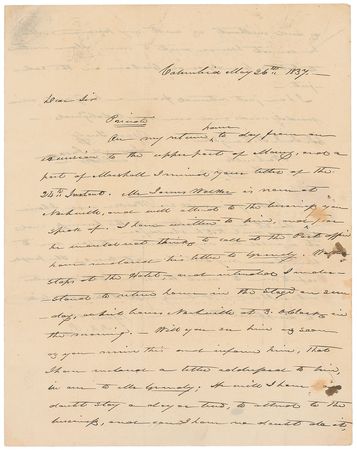 Columbia May 26th 1837.—
Dear Sir
Private
On my return home to day from an
excursion to the upper part of Maury, and a
part of Marshall I received your letter of the
24th Instant. Mr James Walker is now at
Nashville, and will attend to the business you
speak of. I have written to him, and
he would not think to call at the Post office
have enclosed his letter to Grundy. He
stops at the Hotel—and intended I under-
stand to return home in the Stage on Sun-
day, which leaves Nashville at 3. O'clock in
the morning.— Will you see him as soon
as you receive this and inform him, that
I have enclosed a letter addressed to him,
in one to Mr Grundy; He will I have no
doubt stay a day or two, to attend to the
business, and can I have no doubt do it,